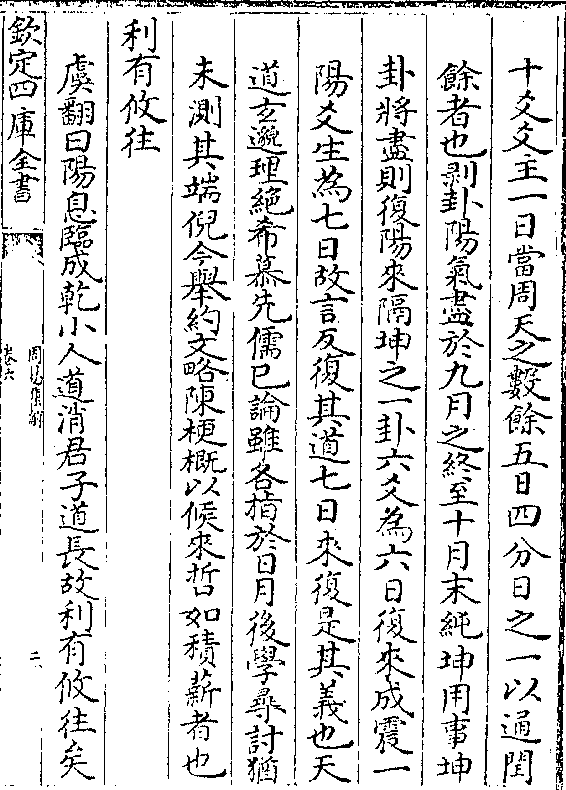 十爻爻主一日當周天之數餘五日四分日之一以通閏
餘者也剥卦陽氣盡於九月之終至十月末純坤用事坤
卦將盡則復陽來隔坤之一卦六爻為六日復來成震一
陽爻生為七日故言反復其道七日來復是其義也天
道玄邈理絶希慕先儒已論雖各指於日月後學尋討猶
未測其端倪今舉約文略陳梗概以候來哲如積薪者也
利有攸往
虞翻曰陽息臨成乾小人道消君子道長故利有攸往矣
欽定四庫全書
周易集解
卷六
二